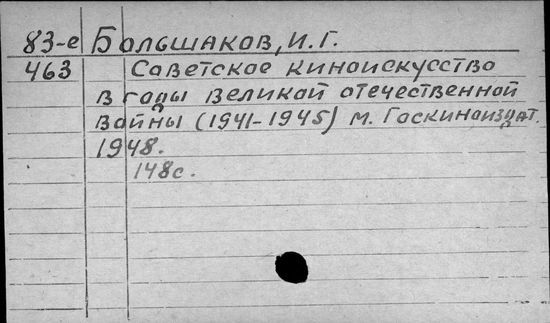 83-е Большаков, И.Г.
463 Советское киноискусство
в годы великой отечественной
войны (1941-1945) М. Госкиноиздат.
1948.
148с.